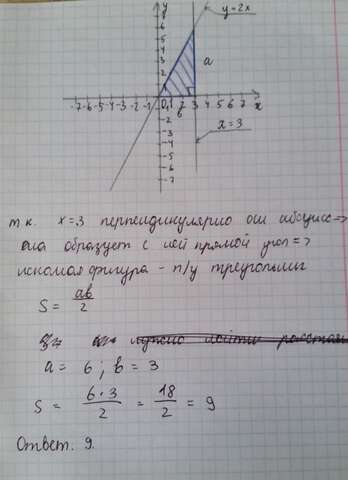 y
y=2x
8
7
6
5
4
3
2
1
a
b
-7 -6 -5 -4 -3 -2 -1 0 1 2 3 4 5 6 7 x
-1
-2
-3
-4
-5
-6
-7
x=3
т.к. x=3 перпендикулярно оси абсцисс=>
она образует с ней прямой угол=>
искомая фигура - п/у треугольник
S = ab/2
нужно найти расстоя
a = 6 ; b = 3
S = 6·3/2 = 18/2 = 9
Ответ: 9.